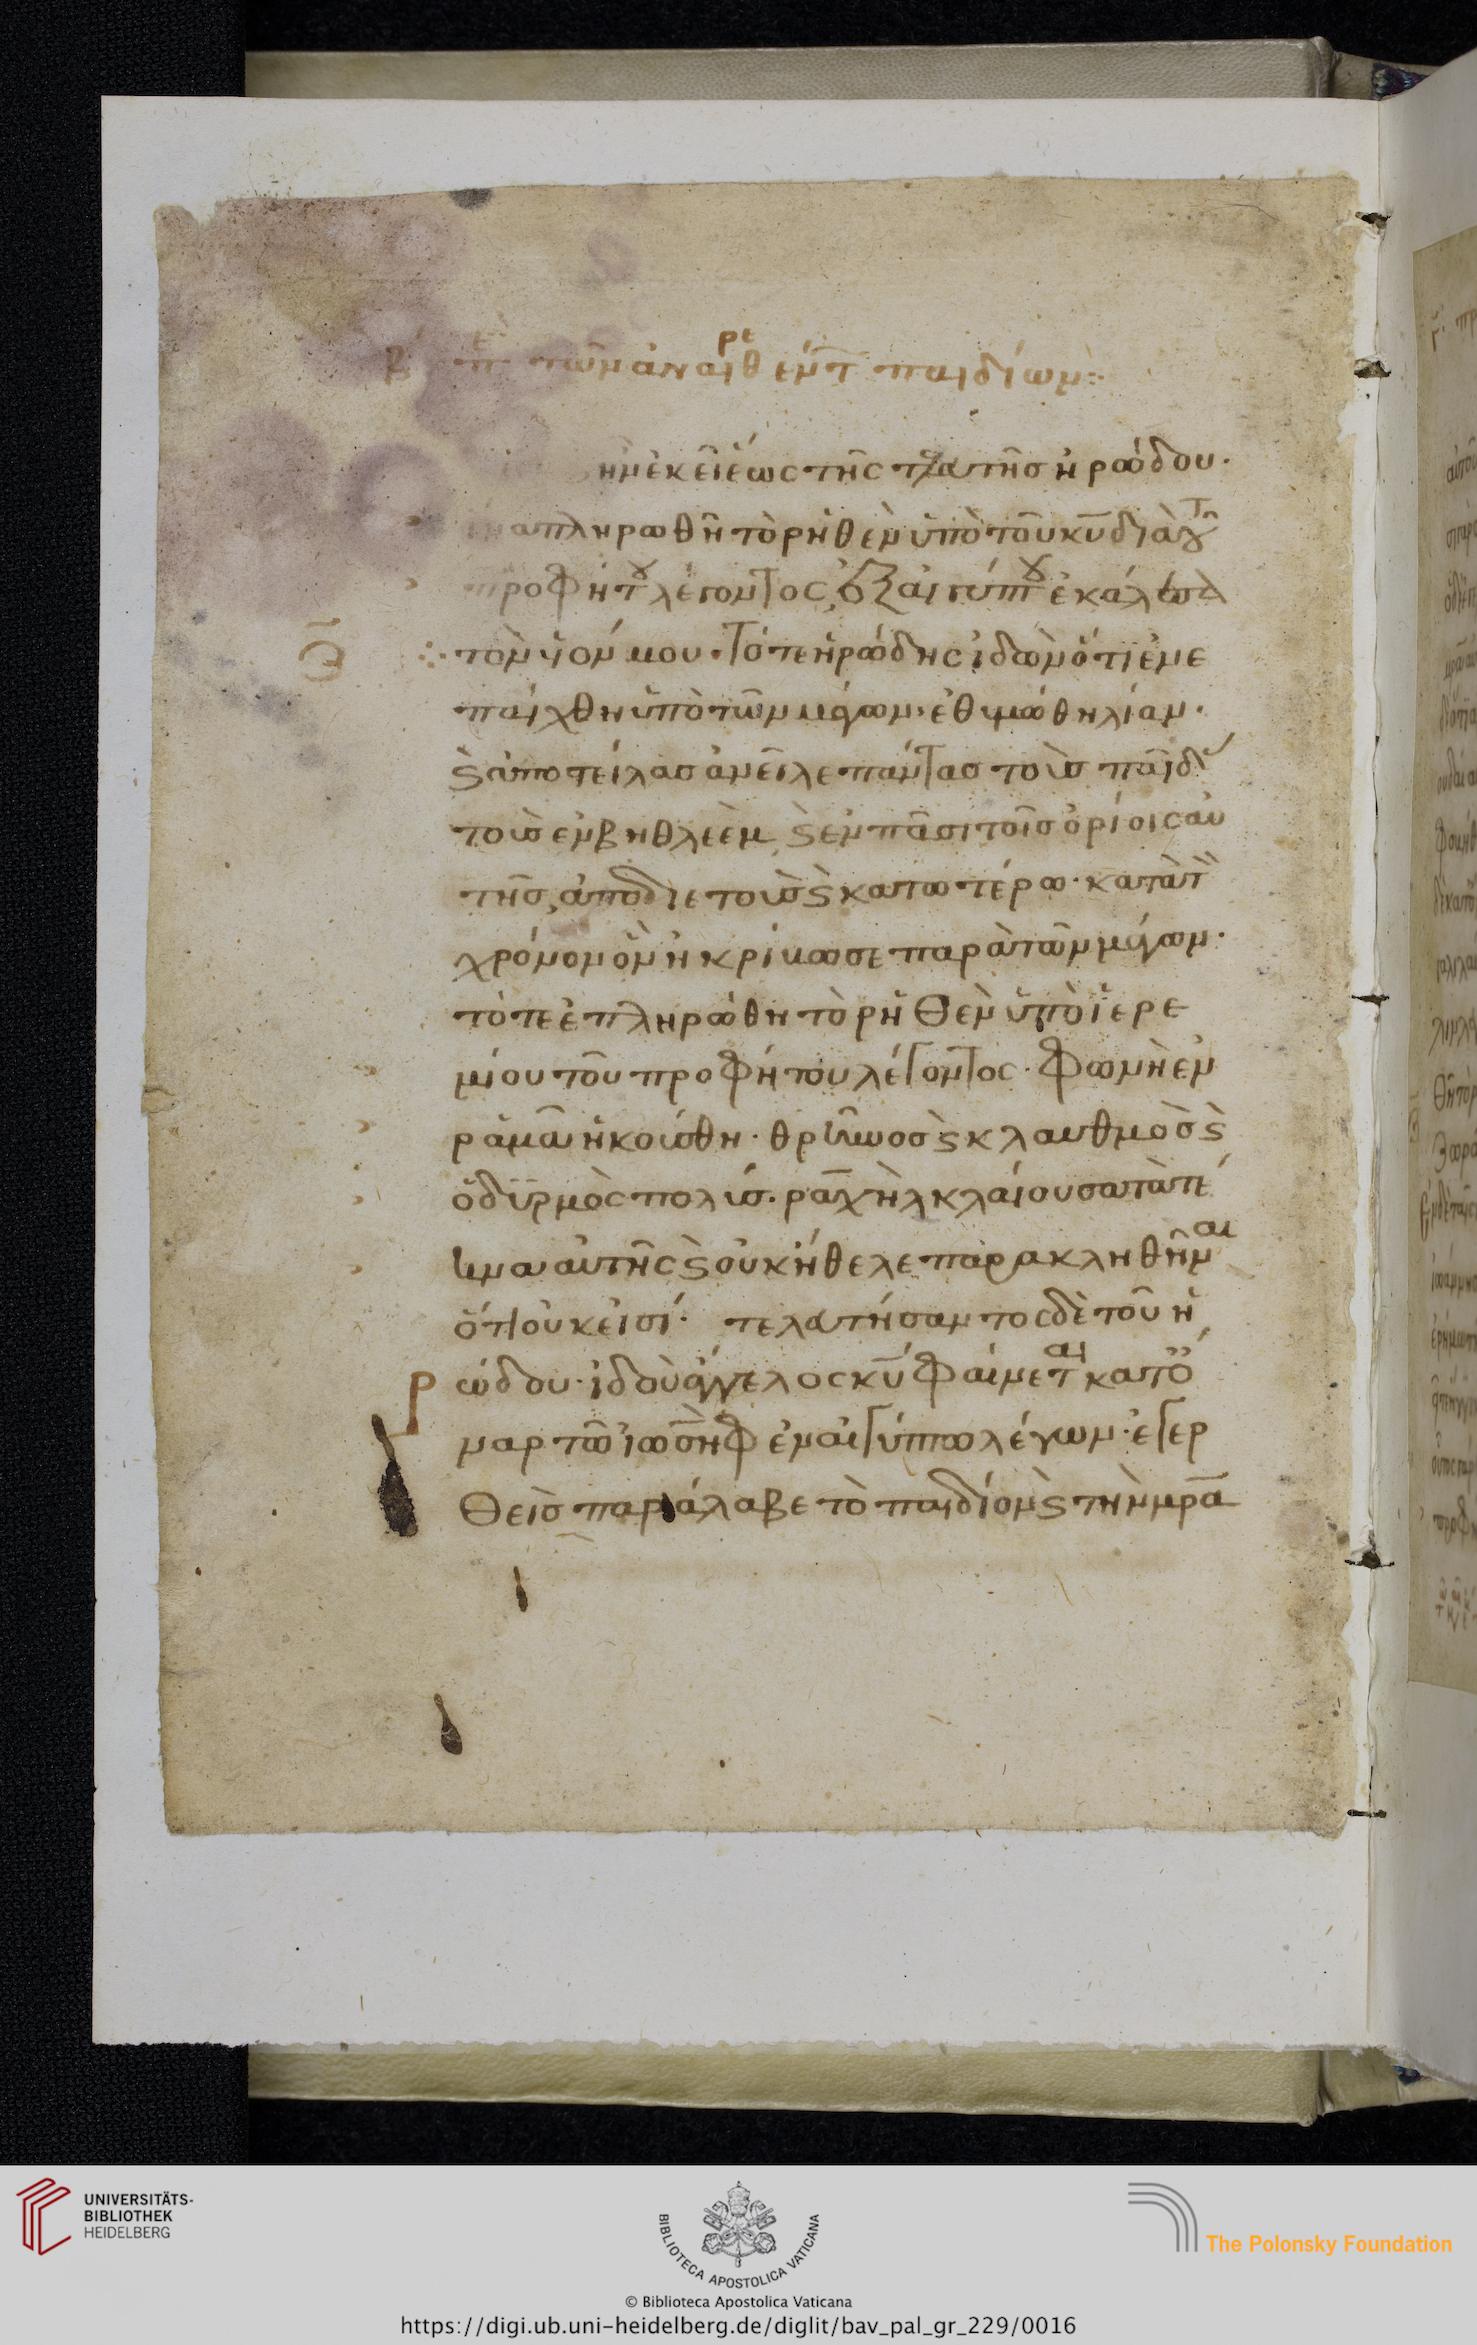 β π̅ε̅ τῶν ἀναιρεθέντ̅ παιδίων:
ἦν ἐκεῖ ἕως τῆς τελευτῆσ ἡρώδου·
ἵνα πληρωθῆ τὸ ρηθὲν ὑπὸ τοῦ κ̅υ̅ διὰ τοῦ
προφήτου λέγοντος, ἐξ αἰγύπτου ἐκάλεσα
τὸν υἱόν μου· τότε ἡρώδης ἰδὼν ὅτι ἐνε
παίχθη ὑπὸ τῶν μάγων· ἐθυμώθη λίαν·
ϛ ἀποστείλασ ἀνεῖλε πάντασ τοὺσ παῖδ
τοὺσ ἐν βηθλεὲμ ϛ ἐν πᾶσι τοῖσ ὁρίοις αὐ
τῆσ, ἀπὸ διετοῦσ ϛ κατωτέρω· κατὰ τ
χρόνον ὃν ἠκρίβωσε παρὰ τῶν μάγων·
τότε ἐπληρώθη τὸ ρηθὲν ὑπὸ ἱερε
μίου τοῦ προφήτου λέγοντος· φωνὴ ἐν
ραμᾶ ἠκούσθη· θρῆνοσ ϛ κλαυθμὸσ ϛ
ὀδυρμὸς πολύσ· ραχὴλ κλαίουσα τὰ τέ
κνα αὐτῆς ϛ οὐκ ἤθελε παρακληθῆναι
ὅτι οὐκ εἰσί· τελευτήσαντος δὲ τοῦ ἡ
ρώδου· ἰδοὺ ἄγγελος κ̅υ̅ φαίνεται κατ ὄ
ναρ τῶ ἰωσὴφ ἐν αἰγύπτω λέγων· ἐγερ
θεὶσ παράλαβε τὸ παιδίον ϛ τὴν μ̅ρ̅α̅
UNIVERSITÄTS-
BIBLIOTHEK
HEIDELBERG
BIBLIOTECA APOSTOLICA VATICANA
The Polonsky Foundation
© Biblioteca Apostolica Vaticana
https://digi.ub.uni-heidelberg.de/diglit/bav_pal_gr_229/0016